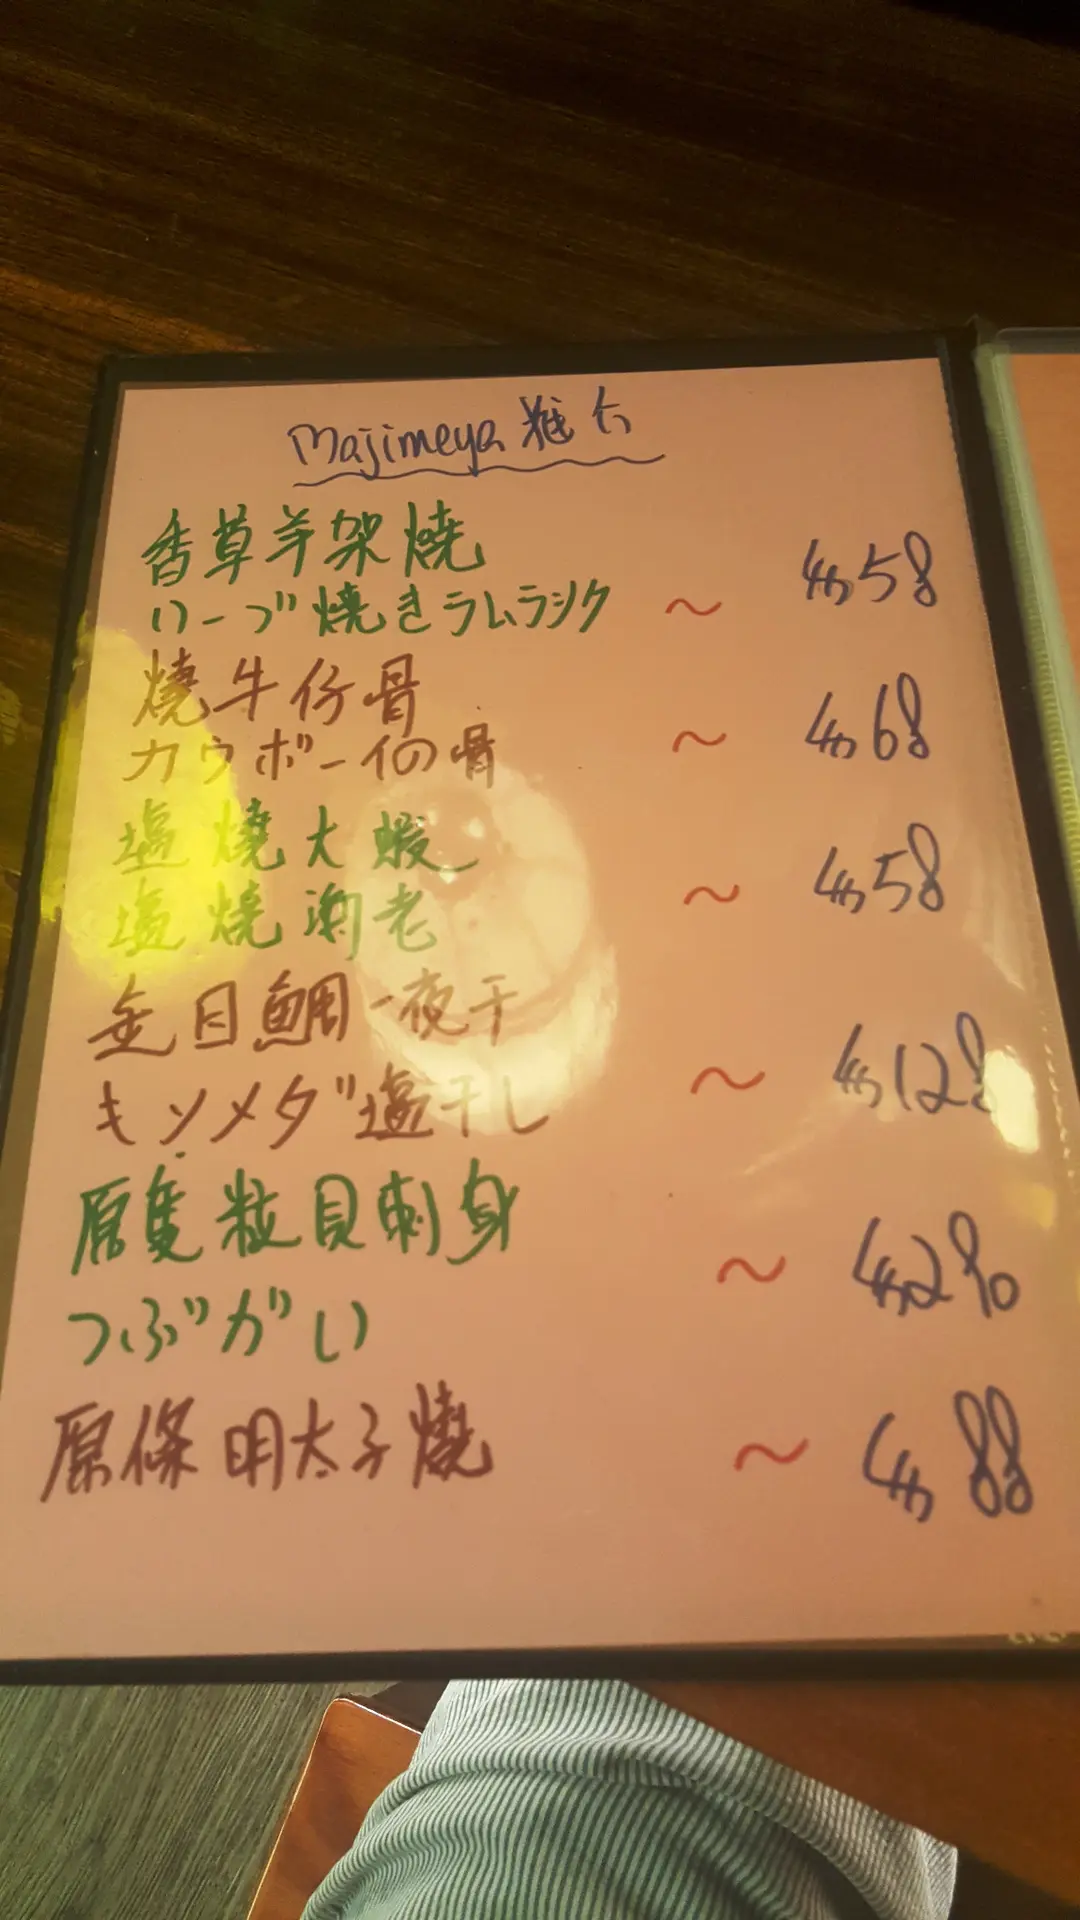 Majimeya 推介
香草羊架燒
ハーブ焼きラムラック ~ $58
燒牛仔骨
カウボーイの骨 ~ $68
塩燒大蝦
塩焼海老 ~ $58
金目鯛一夜干
キンメダ塩干し ~ $128
原隻粒貝刺身
つぶがい
原條明太子燒 ~ $88